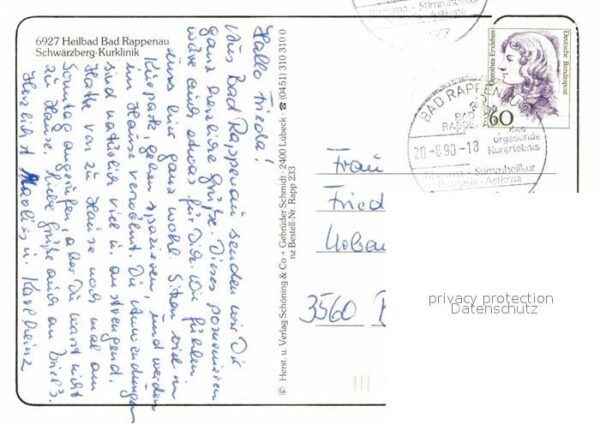 6927 Heilbad Bad Rappenau
Schwärzberg-Kurklinik
Hallo Frieda!
Aus Bad Rappenau senden wir Dir
ganz herzliche Grüße. Dieses
wäre auch etwas für Dich. Wir fühlen
uns hier ganz wohl. Sitzen viel im
Kurpark, gehen spazieren, und werden
im Hause verwöhnt. Die Anwendungen
sind natürlich viel u. anstrengend.
Hatte vor zu Hause noch mal am
Sonntag angerufen, aber Du warst nicht
zu Hause. Liebe Grüße auch an
Herzlichst u. Karlheinz
© Herst. u. Verlag Schöning & Co + Gebrüder Schmidt · 2400 Lübeck · ☎ (0451) 310 310 0
nz Bestell-Nr. Rapp 233
Deutsche Bundespost
60
BAD RAPPENAU
BAD
RAPPE
urgesunde
Kurerlebnis
20-8.90-18
Frau
Fried
3560
privacy protection
Datenschutz